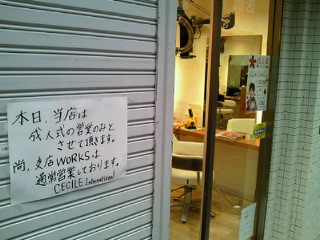 本日、当店は
成人式の営業のみと
させて頂きます。
尚、支店WORKSは
通常営業しております。
CECILE International